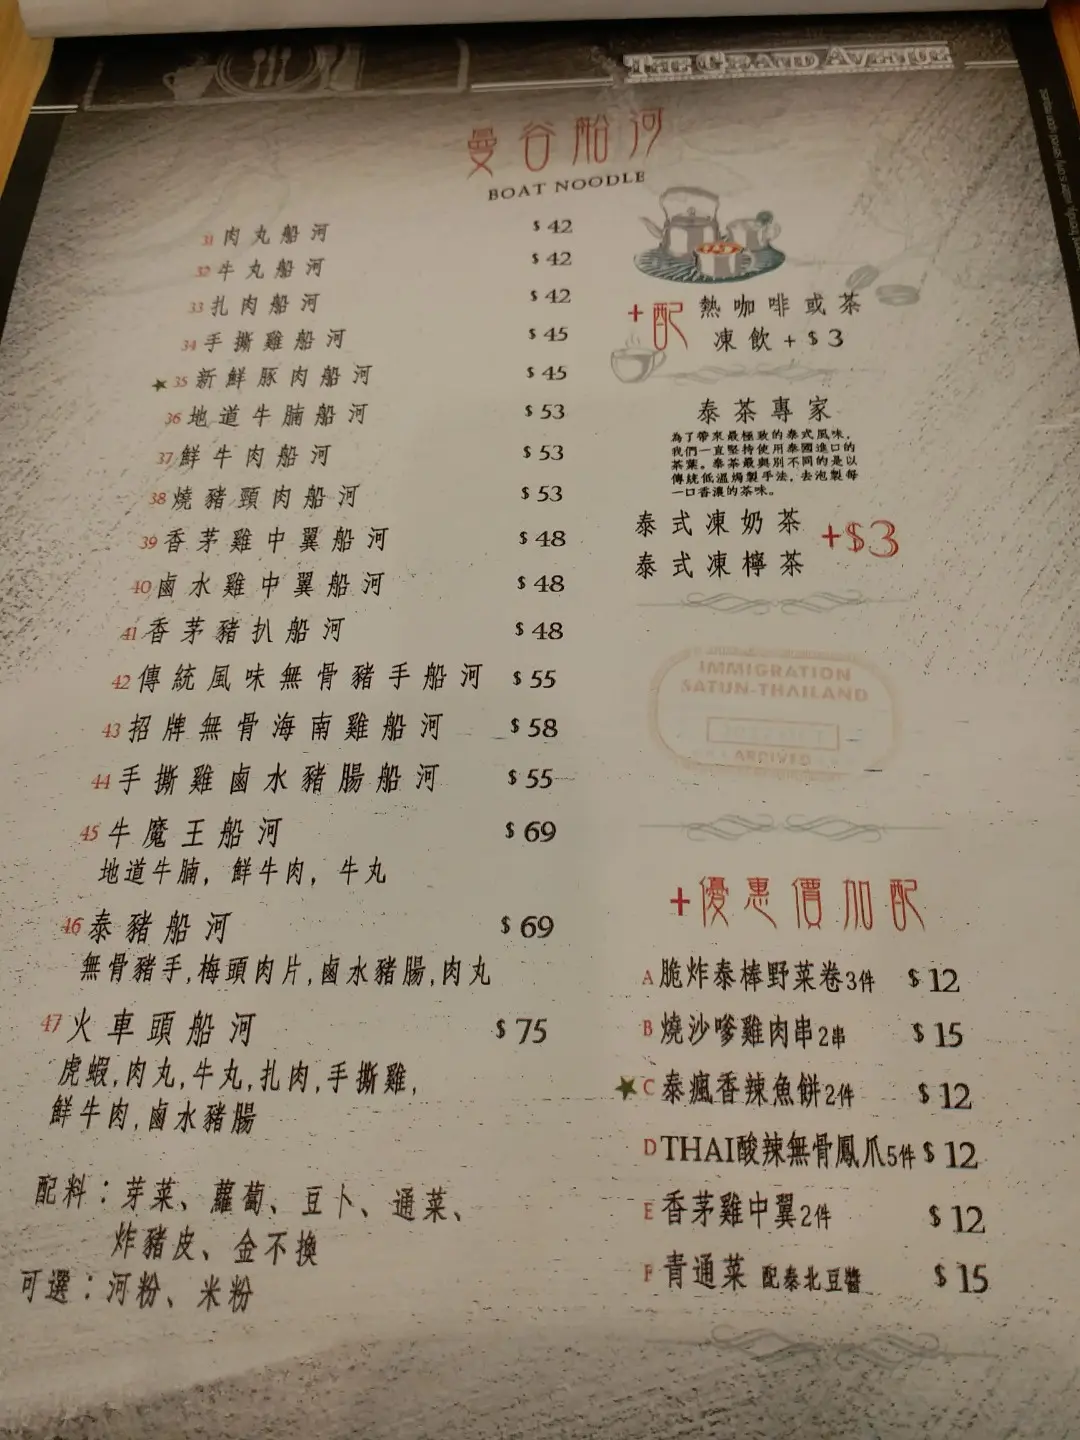 THE GRAND AVENUE
曼谷船河
BOAT NOODLE
31 肉丸船河 $ 42
32 牛丸船河 $ 42
33 扎肉船河 $ 42
34 手撕雞船河 $ 45
★ 35 新鮮豚肉船河 $ 45
36 地道牛腩船河 $ 53
37 鮮牛肉船河 $ 53
38 燒豬頸肉船河 $ 53
39 香茅雞中翼船河 $ 48
40 鹵水雞中翼船河 $ 48
41 香茅豬扒船河 $ 48
42 傳統風味無骨豬手船河 $ 55
43 招牌無骨海南雞船河 $ 58
44 手撕雞鹵水豬腸船河 $ 55
45 牛魔王船河 $ 69
地道牛腩, 鮮牛肉, 牛丸
46 泰豬船河 $ 69
無骨豬手,梅頭肉片,鹵水豬腸,肉丸
47 火車頭船河 $ 75
虎蝦,肉丸,牛丸,扎肉,手撕雞,
鮮牛肉,鹵水豬腸
配料：芽菜、蘿蔔、豆卜、通菜、
炸豬皮、金不換
可選：河粉、米粉
+配 熱咖啡或茶
凍飲 + $ 3
泰茶專家
為了帶來最極致的泰式風味,
我們一直堅持使用泰國進口的
茶葉。泰茶最與別不同的是以
傳統低溫焗製手法, 去泡製每
一口香濃的茶味。
泰式凍奶茶
泰式凍檸茶
+$3
IMMIGRATION
SATUN-THAILAND
ARRIVED
+優惠價加配
A 脆炸泰棒野菜卷3件 $ 12
B 燒沙嗲雞肉串2串 $ 15
★ C 泰瘋香辣魚餅2件 $ 12
D THAI酸辣無骨鳳爪5件 $ 12
E 香茅雞中翼2件 $ 12
F 青通菜 配泰北豆醬 $ 15